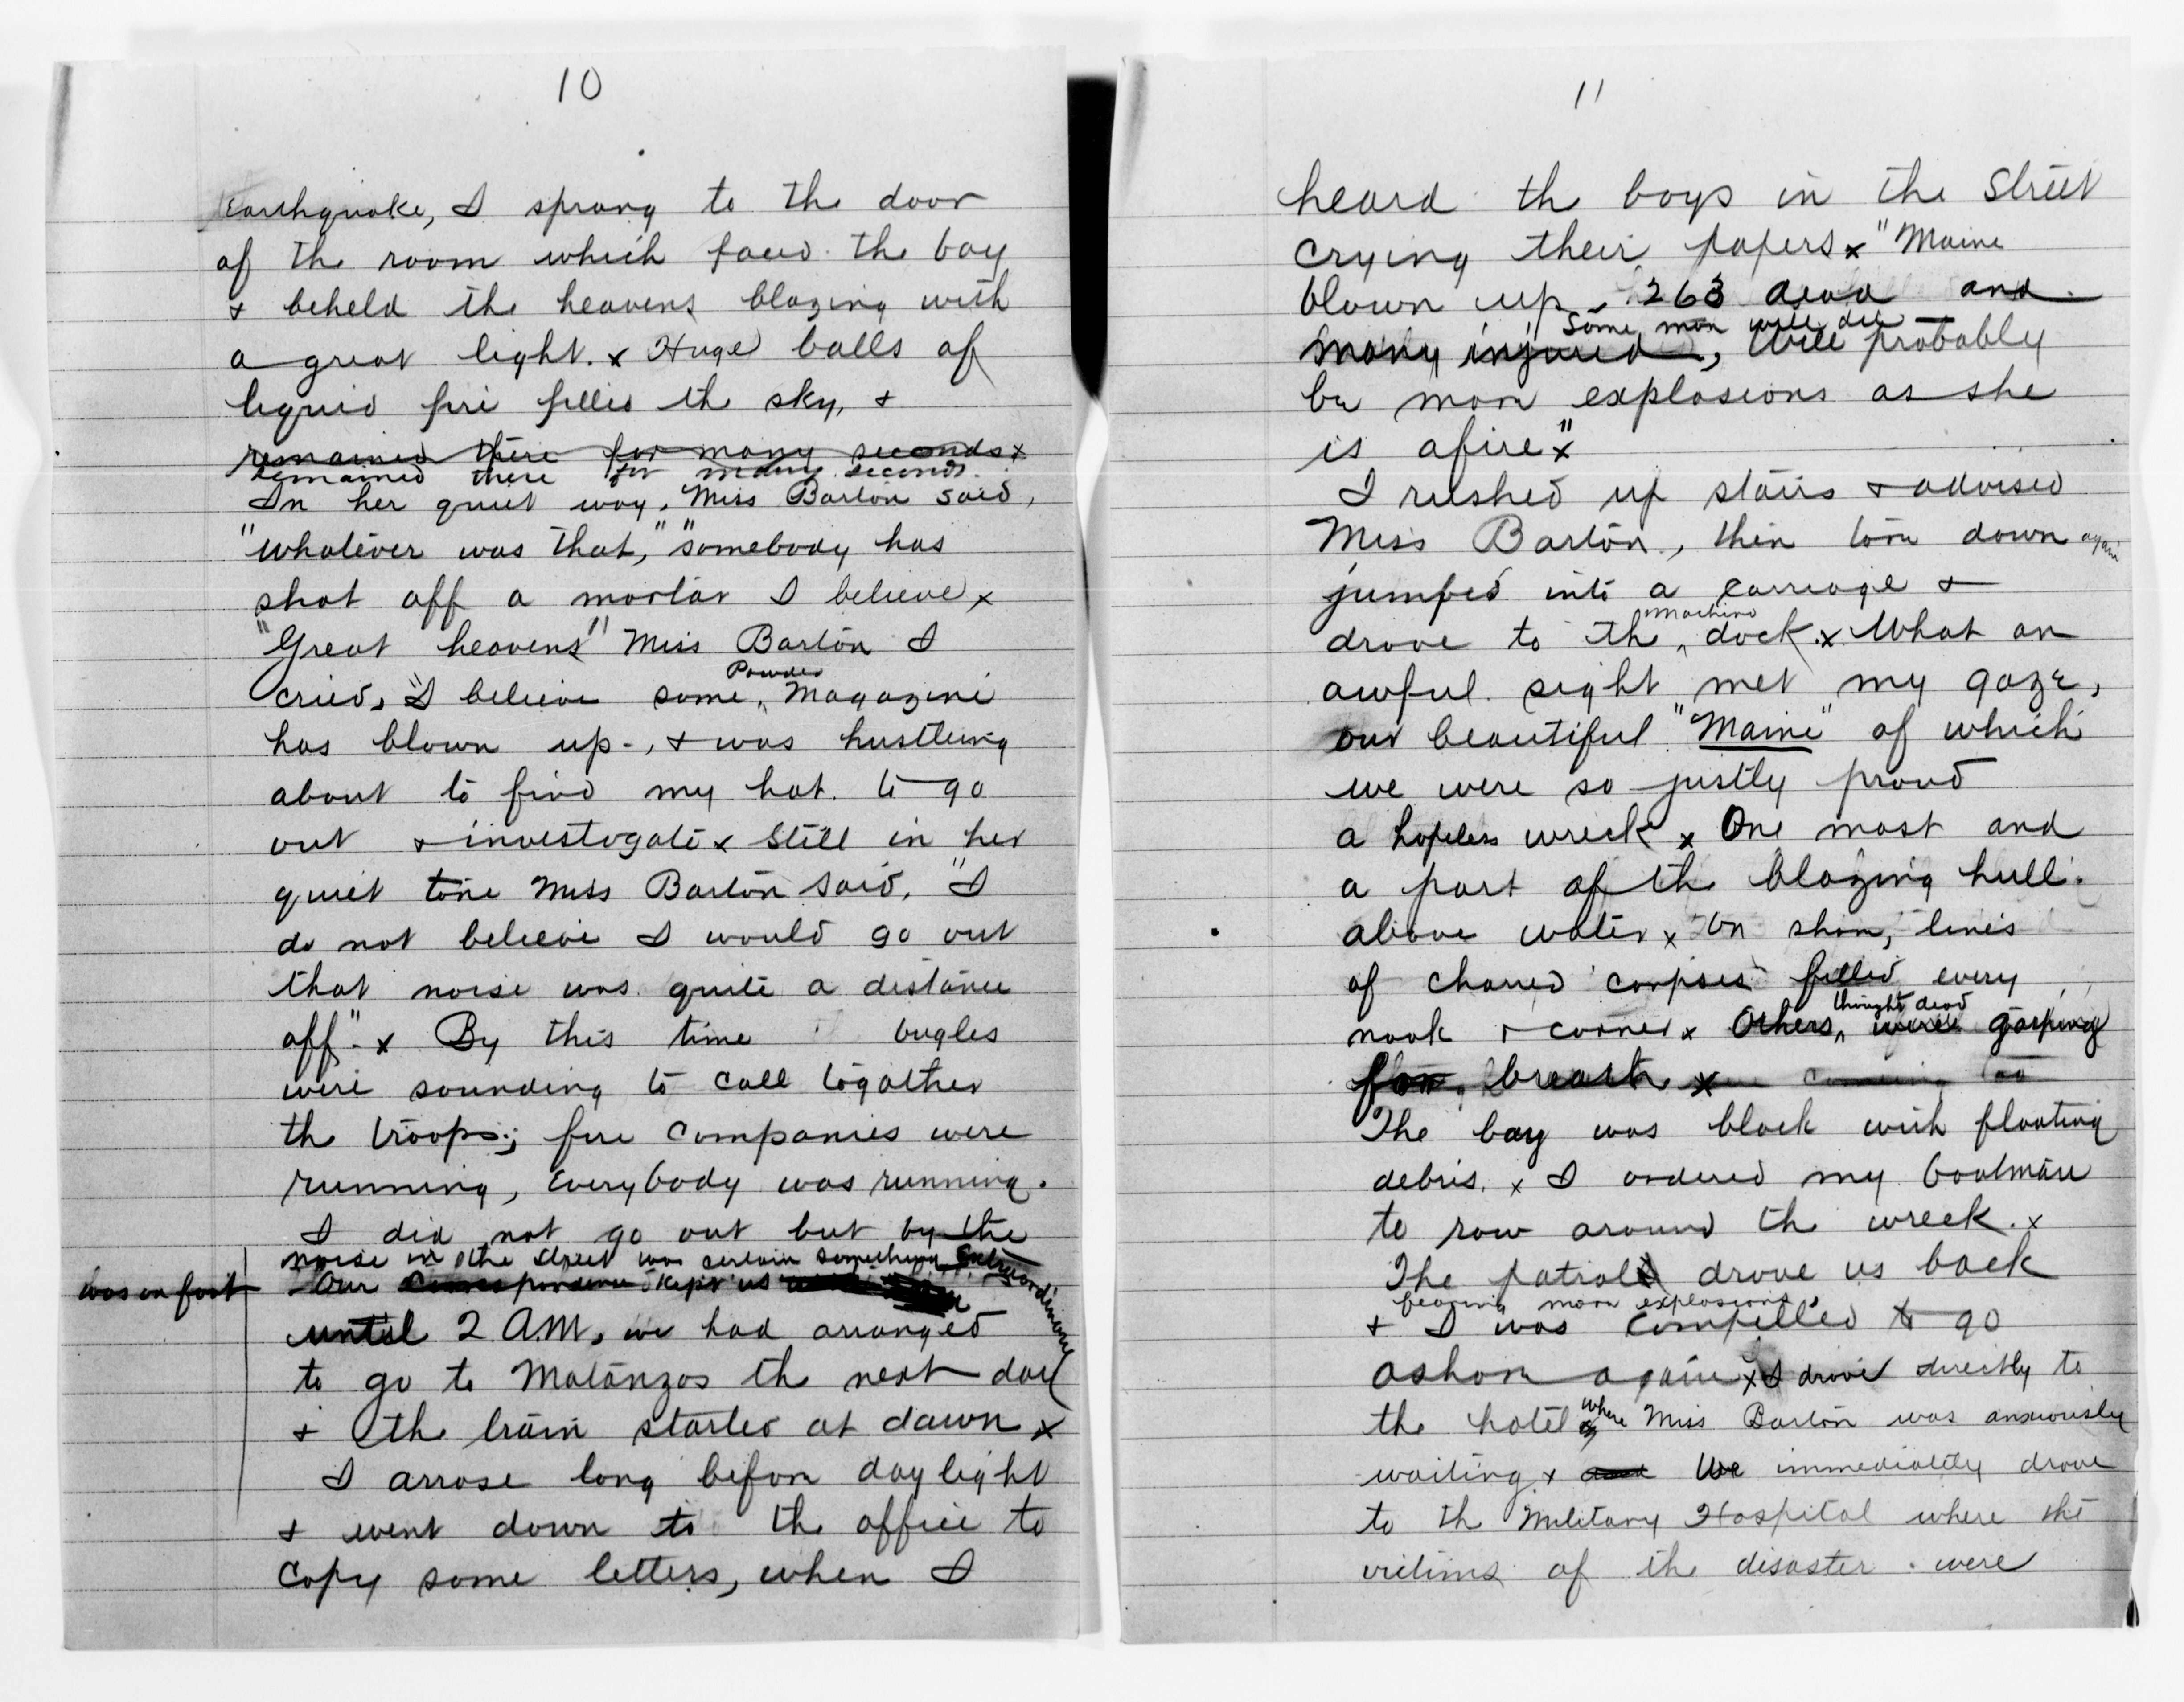 10
Earthquake, I sprang to the door
of the room which faced the bay
& beheld the heavens blazing with
a great light. x Huge balls of
liquid fire filled the sky, &
remained there for many seconds x
remained there for many seconds.
In her quiet way, Miss Barton said,
"whatever was that," "somebody has
shot off a mortar I believe x
"Great heavens" Miss Barton I
Powder
cried, "I believe some, Magazine
has blown up-, & was hustling
about to find my hat. to go
out & investogate x Still in her
quiet tone Miss Barton said, "I
do not believe I would go out
that noise was quite a distance
off". x By this time bugles
were sounding to call togather
the troops; fire companies were
running, everybody was running.
I did not go out but by the
noise in the street was certain something extraordinary
was on foot
Our correspondence kept us
until 2 A.M, we had arranged
to go to Matanzas the next day
& the train started at dawn x
I arrose long before daylight
& went down to the office to
copy some letters, when I
11
heard the boys in the street
crying their papers x "Maine
blown up - 263 dead and
Some more will die
many injured, Will probably
be more explosions as she
is afire" x
I rushed up stairs & advised
Miss Barton, then tore down again
jumped into a carriage &
machine
drove to the, dock. x What an
awful sight met my gaze,
our beautiful "Maine" of which
we were so justly proud
a hopeless wreck x One mast and
a part of the blazing hull.
above water x On shore, lines
of charred corpses filled every
thought dead
nook & corner x Others, were gasping
for breath x
The bay was black with floating
debris. x I ordered my boatman
to row around the wreck. x
The patrol drove us back
fearing more explosions,
& I was compelled to go
ashore again x I drove directly to
the hotel where Miss Barton was anxiously
waiting x and We immediatly drove
to the Military Hospital where the
victims of the disaster were